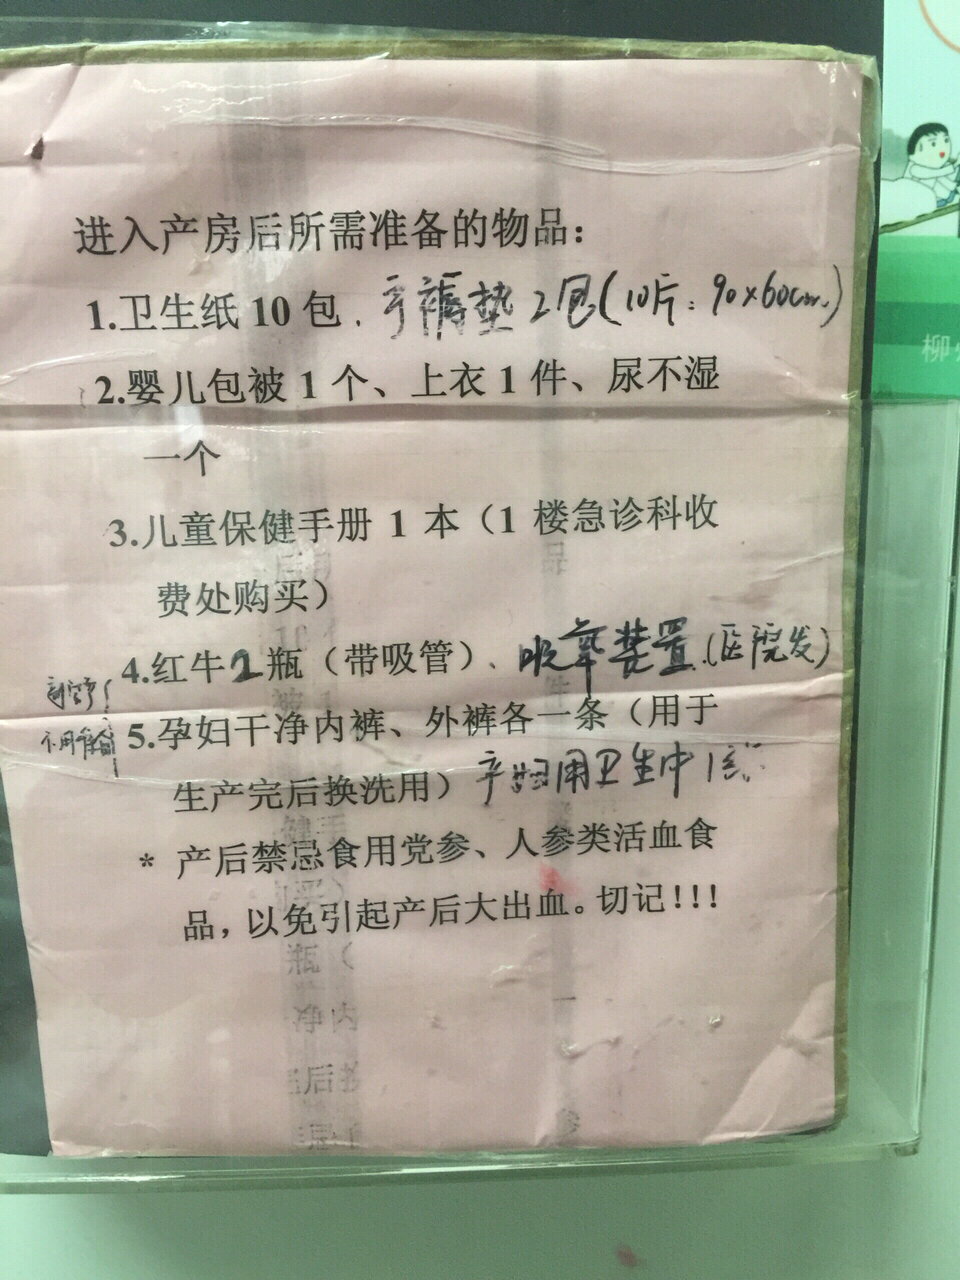 进入产房后所需准备的物品：
1.卫生纸 10 包、产褥垫 2包(10片：90×60cm)
2.婴儿包被 1 个、上衣 1 件、尿不湿
一个
3.儿童保健手册 1 本（1 楼急诊科收
费处购买）
4.红牛2瓶（带吸管）、收集装置(医院发)
剖宫产
不用准备
5.孕妇干净内裤、外裤各一条（用于
生产完后换洗用）产妇用卫生巾 1
* 产后禁忌食用党参、人参类活血食
品，以免引起产后大出血。切记!!!
柳